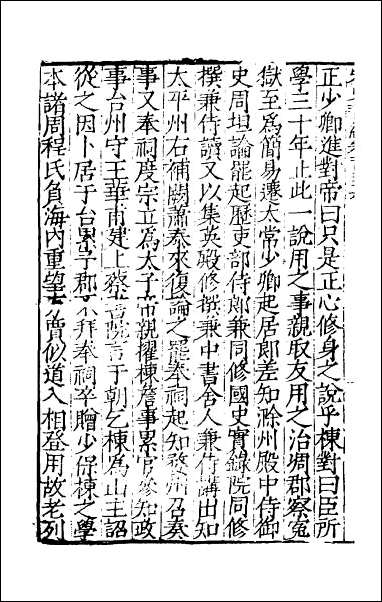 正少卿進對帝曰只是正心修身之說乎棟對曰臣所
學三十年止此一說用之事親取友用之治凋郡察冤
獄至爲簡易遷太常少卿起居郎差知滁州殿中侍御
史周坦論罷起歷吏部侍郎兼同修國史實錄院同修
撰兼侍讀又以集英殿修撰兼中書舍人兼侍講出知
太平州右補闕蕭泰來復論之罷奉祠起知婺州召奏
事又奉祠度宗立爲太子帝親擢棟詹事累官參知政
事台州守王華甫建上蔡書院言于朝乞棟爲山主詔
從之因卜居于台累予郡不拜奉祠卒贈少保棟之學
本諸周程氏負海內重望方賈似道入相登用故老列